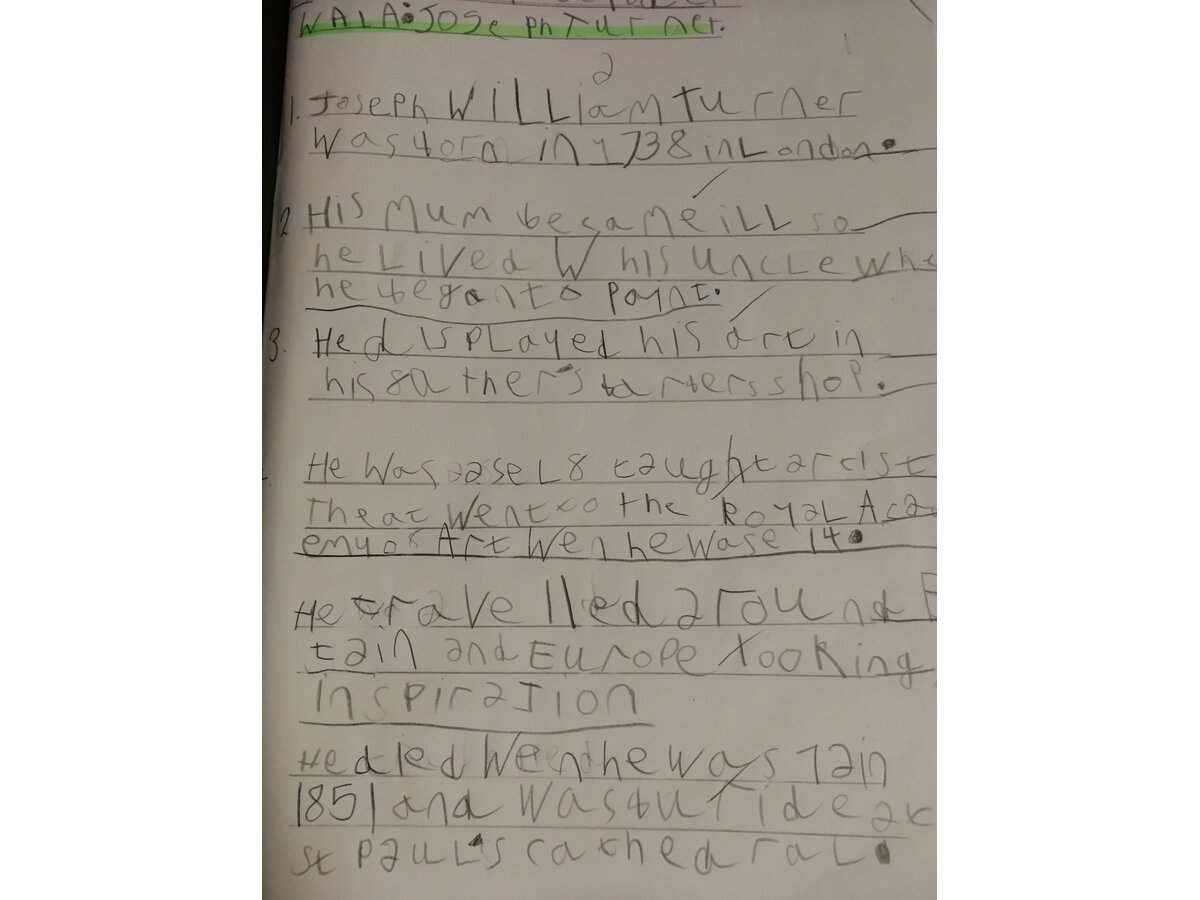 WALA: Joseph Turner.
2
1. Joseph William Turner
was born in 1738 in London.
2. His mum became ill so
he lived W his uncle whe
he began to paint.
3. He displayed his art in
his 8ather's barbers shop.
He was a sel8 taught artist
Theat went to the Royal Aca
emy o8 Art wen he wase 14.
He travelled around B
tain and Europe looking
inspiration
He died wen he was 7 in
1851 and was buride at
St Paul's cathedral.